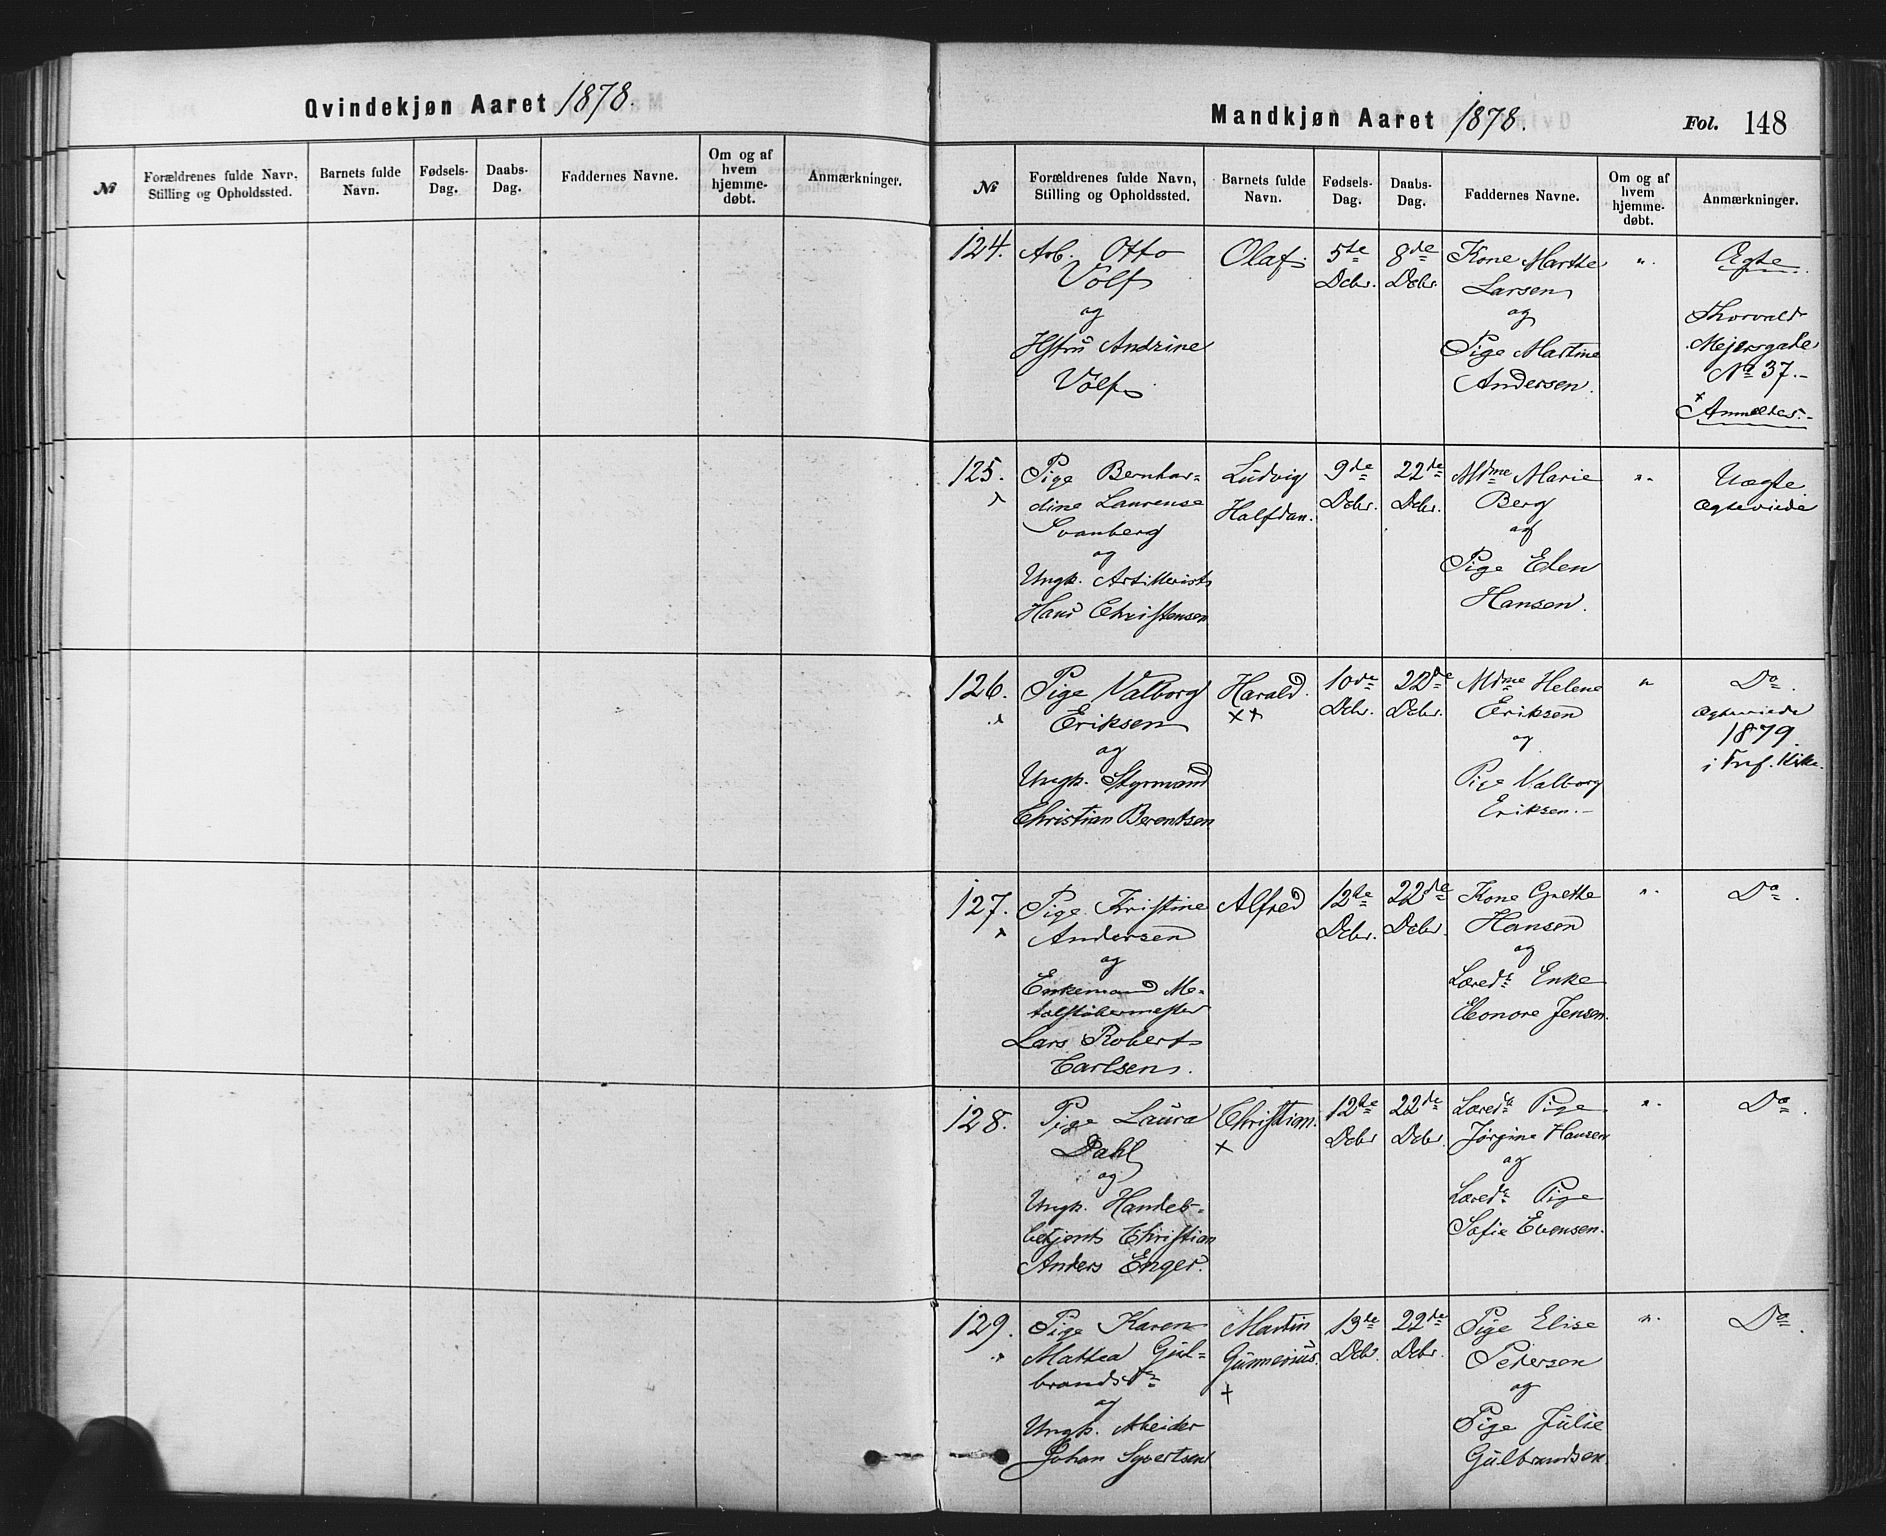 Qvindekjøn Aaret 1878.
№
Forældrenes fulde Navn,
Stilling og Opholdssted.
Barnets fulde
Navn.
Fødsels-
Dag.
Daabs-
Dag.
Faddernes Navne.
Om og af
hvem
hjemme-
døbt.
Anmærkninger.
Mandkjøn Aaret 1878.
Fol. 148
№
Forældrenes fulde Navn,
Stilling og Opholdssted.
Barnets fulde
Navn.
Fødsels-
Dag.
Daabs-
Dag.
Faddernes Navne.
Om og af
hvem
hjemme-
døbt.
Anmærkninger.
124.
Arb. Otto
Volf
og
Hstru Andrine
Volf
Olaf.
5te
Dcbr.
8de
Dcbr.
Kone Marthe
Larsen
og
Pige Martine
Andersen.
".
Ægte.
Thorvald
Mejersgade
№ 37.-
Anmeldes.-
125.
Pige Bernhar-
dine Laurense
Svanberg
og
Ungk. Artillerist
Hans Christensen
Ludvig
Halfdan.
9de
Dcbr.
22de
Dcbr.
Mdme Marie
Berg
og
Pige Elen
Hansen.
".
Uægte.
Ægteviede
126.
Pige Valborg
Eriksen
og
Ungk. Styrmand
Christian Berentsen
Harald.
××
10de
Dcbr.
22de
Dcbr.
Mdme Helene
Eriksen
og
Pige Valborg
Eriksen.-
"
Do.
Ægteviede
1879.
i Tref. Kirke.
127.
Pige Kristine
Andersen
og
Enkemand Me-
talstøbermester
Lars Robert
Carlsen.
Alfred
12te
Dcbr.
22de
Dcbr.
Kone Grethe
Hansen
og
Lærede Enke
Eleonore Jensen.
".
Do.
128.
Pige Laura
Dahl
og
Ungk. Handels-
betjent Christian
Anders Enger.
Christian.
×
12te
Dcbr
22de
Dcbr.
Lærede Pige
Jørgine Hansen
og
Lærede Pige
Sofie Evensen.
".
Do.
129.
Pige Karen
Mattea Gul-
brandsen
og
Ungk. Arbeider
Johan Syvertsen
Martin
Gunnerius.
+
13te
Dcbr.
22de
Dcbr.
Pige Elise
Pedersen
og
Pige Julie
Gulbrandsen.
".
Do.